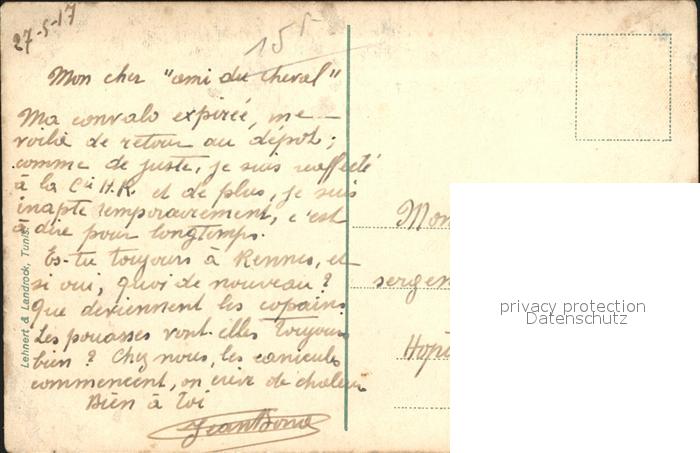 27-5-17
155
Mon cher "ami du cheval"
Ma convalo expirée, me
voilà de retour au dépôt ;
comme de juste, je suis réaffecté
à la Cie H.R. et de plus, je suis
inapte temporairement, c'est
à dire pour longtemps.
Es-tu toujours à Rennes, et
si oui, quoi de nouveau ?
Que deviennent les copains
Les pouasses vont-elles toujours
bien ? Chez nous, les canicules
commencent, on crève de chaleur
Bien à toi
Jean
Lehnert & Landrock, Tunis.
Mon
sergen
Hôpi
privacy protection
Datenschutz